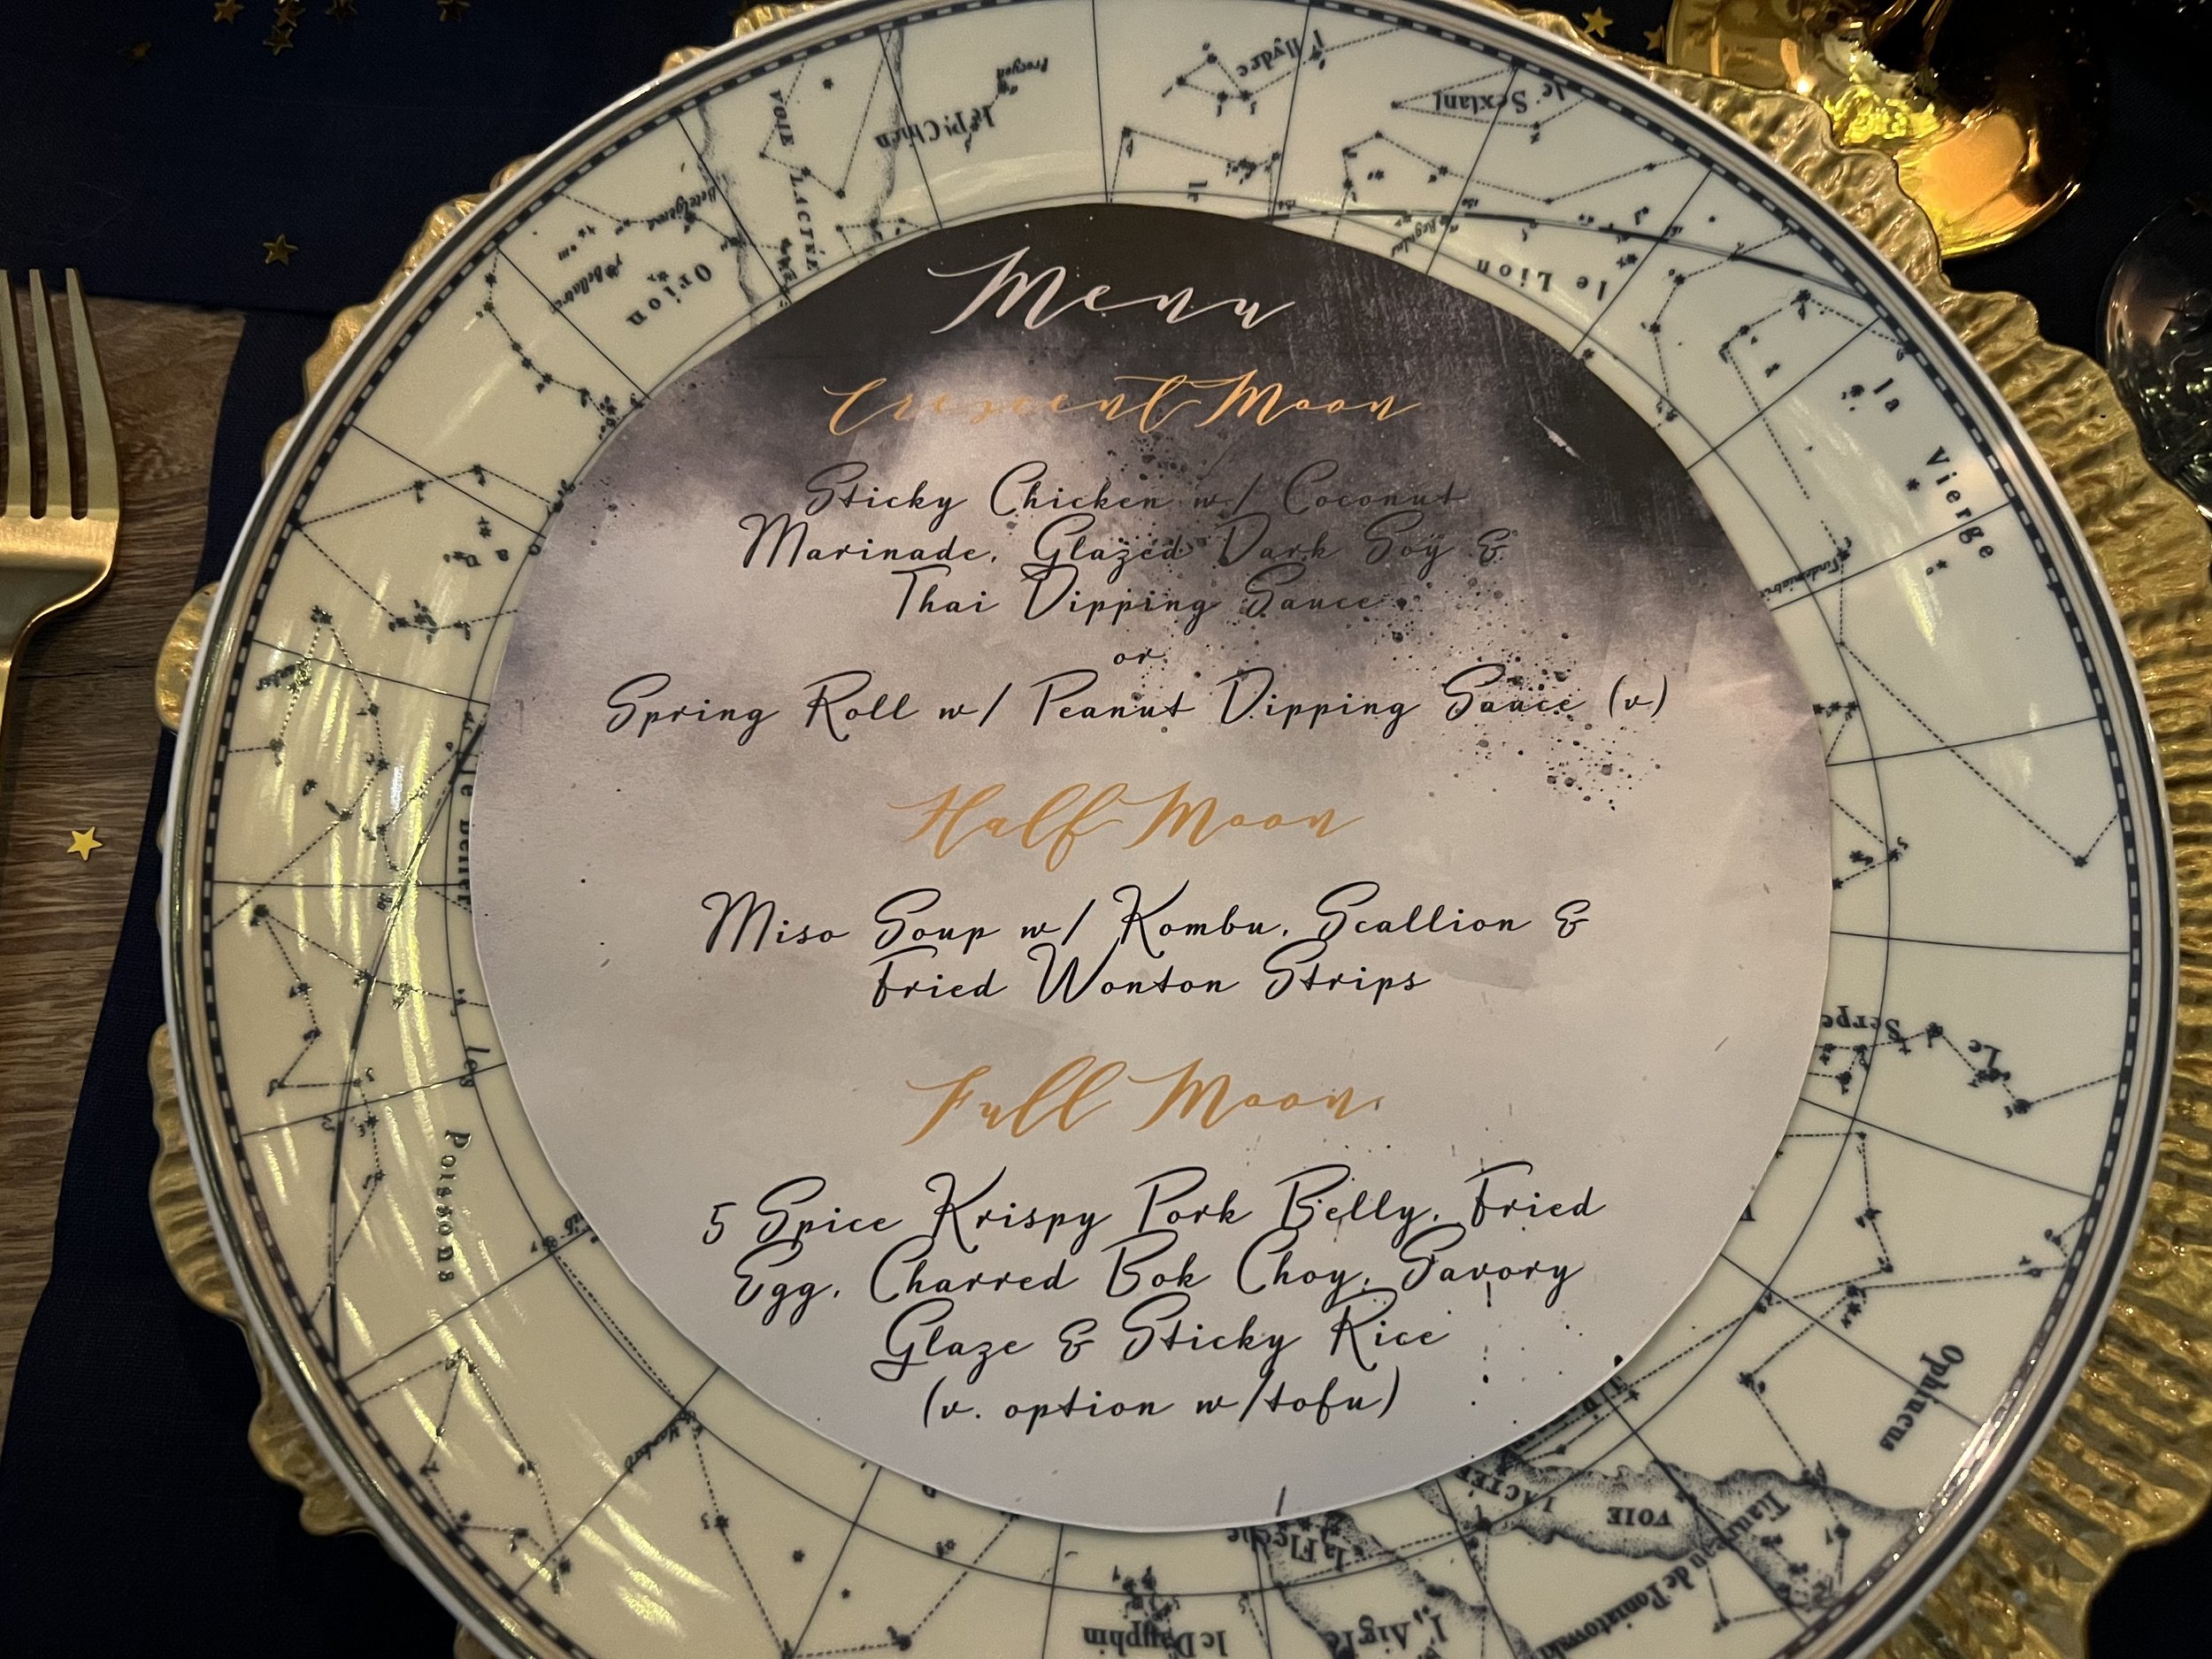 Menu
Crescent Moon
Sticky Chicken w/ Coconut
Marinade, Glazed Dark Soy &
Thai Dipping Sauce
or
Spring Roll w/ Peanut Dipping Sauce (v)
Half Moon
Miso Soup w/ Kombu, Scallion &
Fried Wonton Strips
Full Moon
5 Spice Krispy Pork Belly, Fried
Egg, Charred Bok Choy, Savory
Glaze & Sticky Rice
(v. option w/tofu)
l'Hydre
le Sextant
Procyon
le Pt Chien
VOIE LACTÉE
Orion
le Lion
la Vierge
le Belier
les Poissons
Le Serpe
Ophiucus
VOIE LACTÉE
Taureau de Poniatowski
la Fleche
L'Aigle
le Dauphin